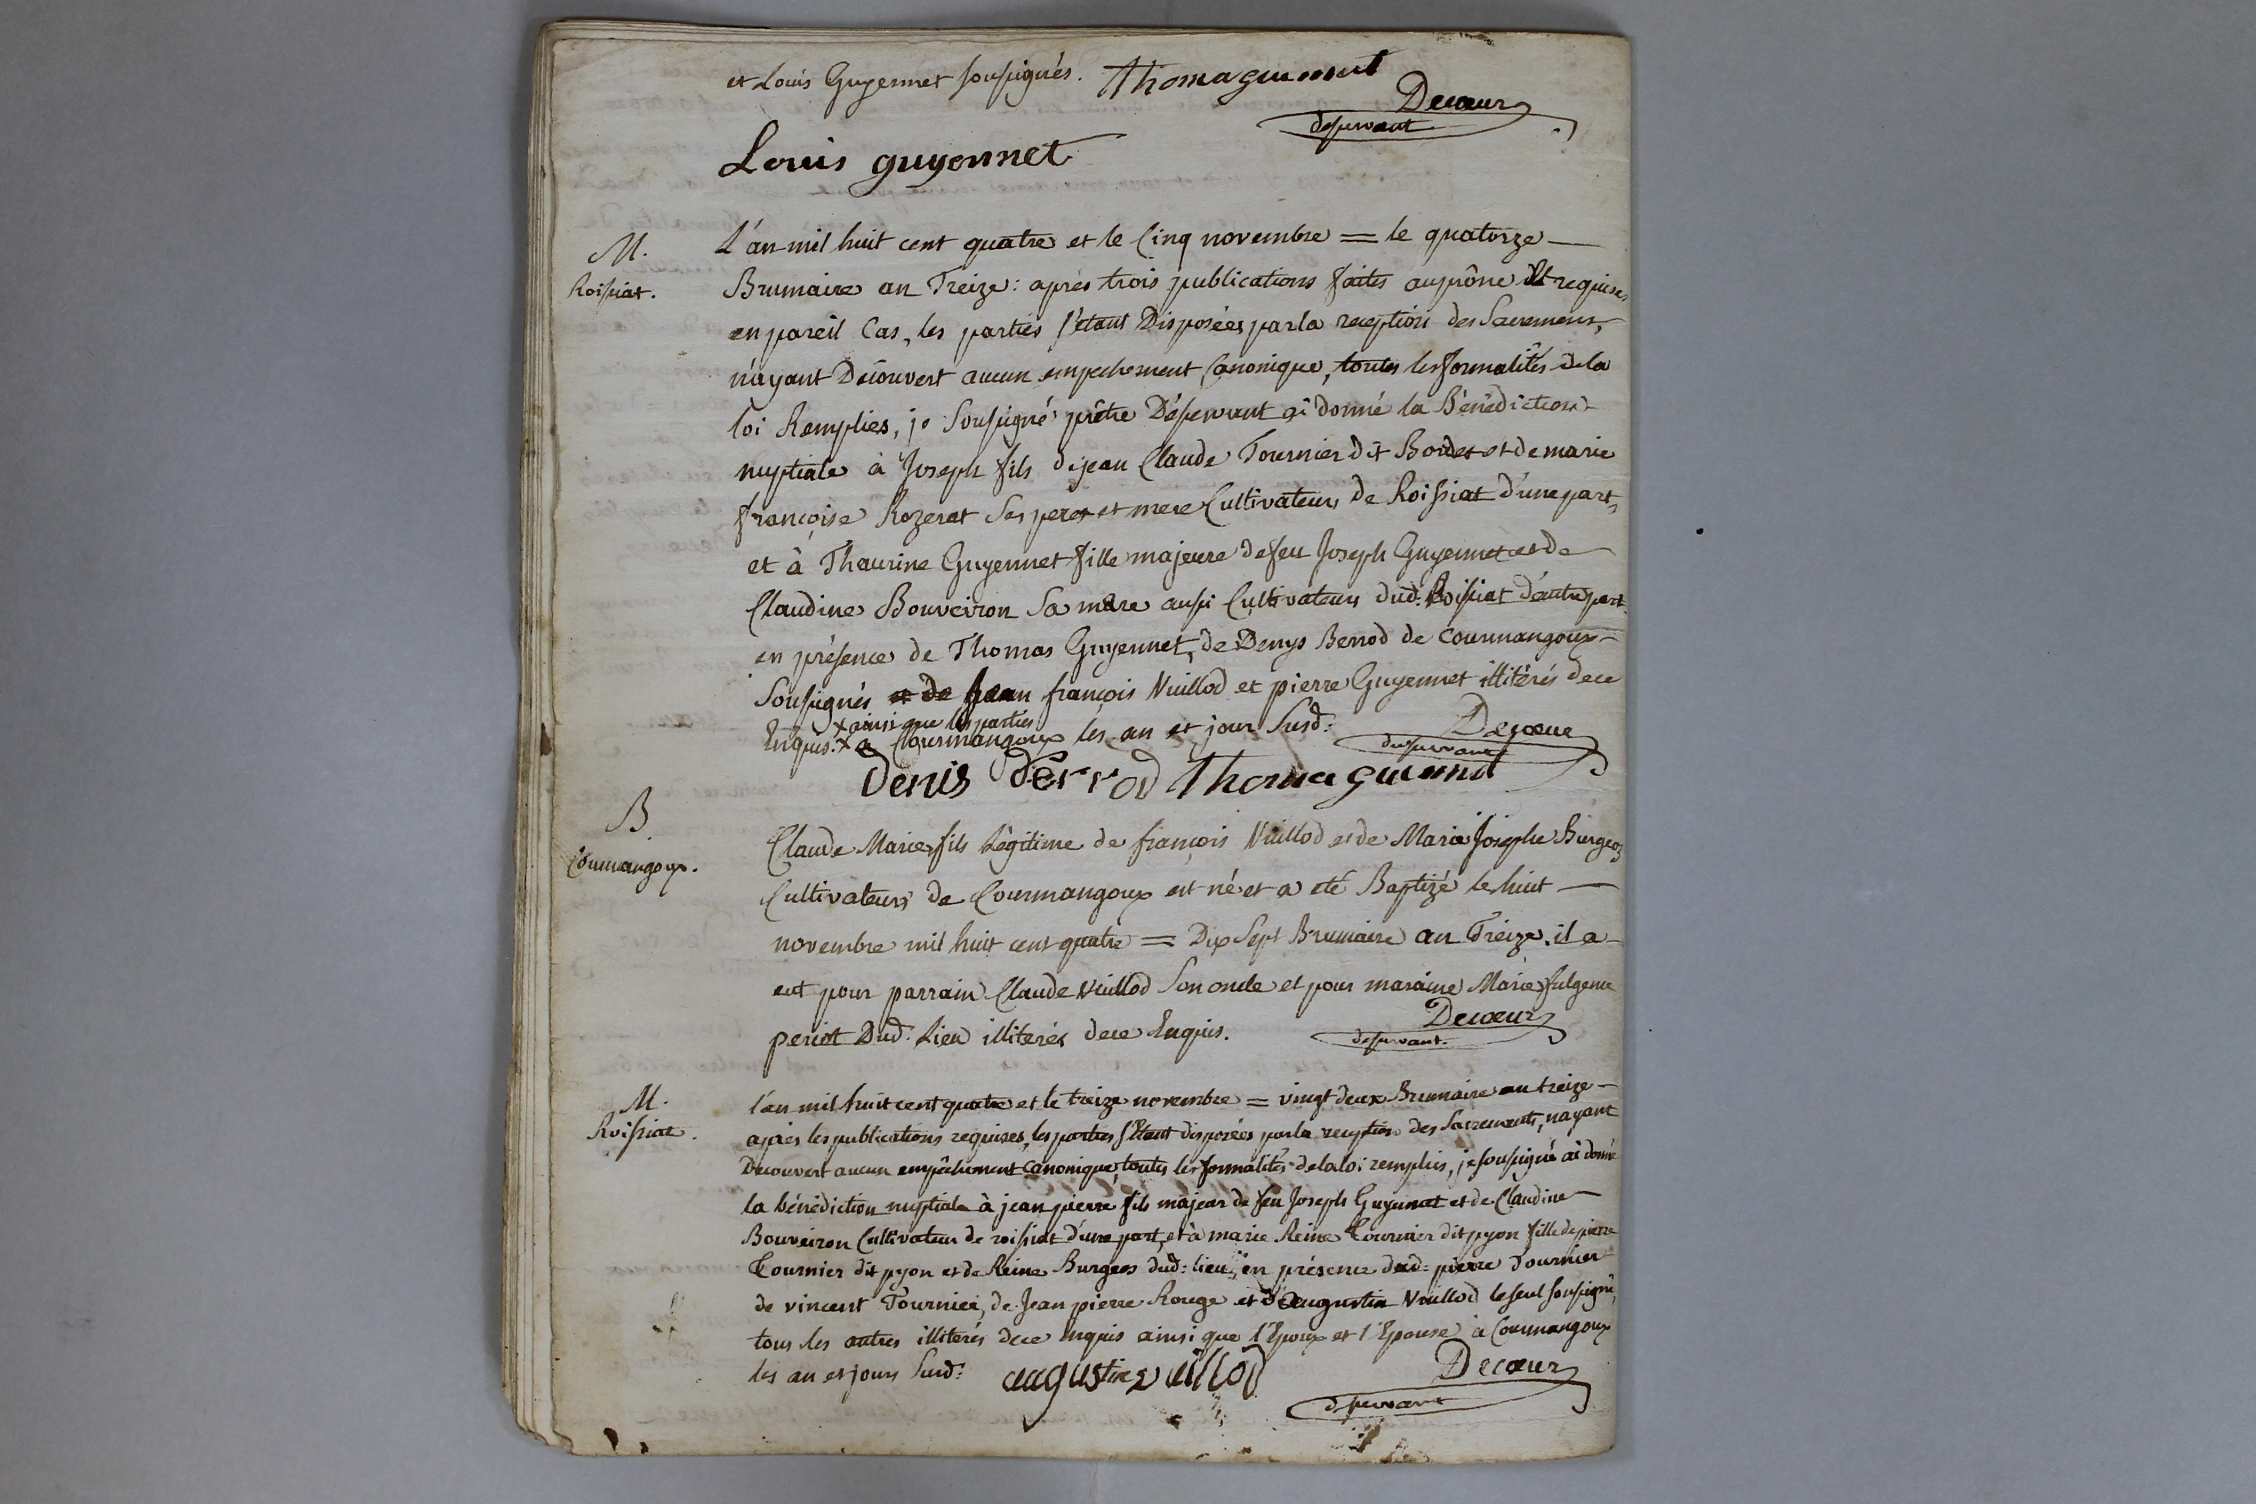 et Louis Guyennet soussignés. Thomaguienet
Decoeur
desservant
Louis guyennet
M.
Roissiat.
L'an mil huit cent quatre et le Cinq novembre = le quatorze
Brumaire an Treize : après trois publications faites au prône et requises
en pareil Cas, les parties s'étant Disposées par la reception des Sacremens,
n'ayant Découvert aucun empechement Canonique, toutes les formalités de la
loi Remplies, je Soussigné prêtre Désservant ai donné la Bénédiction
nuptiale à Joseph fils de jean Claude Tournier dit Bordet et de marie
françoise Rozerat Ses peres et mere Cultivateurs de Roissiat d'une part,
et à Thaurine Guyennet fille majeure de feu Joseph Guyennet et de
Claudine Bouveiron Sa mere aussi Cultivateurs dud: Roissiat d'autre part.
en présence de Thomas Guyennet, de Denys Berrod de Courmangoux
Soussignés et de Jean françois Vuillod et pierre Guyennet illitérés de ce
x ainsi que les parties
Enquis. x a Courmangoux les an et jour Susd:
Decoeur
desservant
Denis Berrod Thoma guienet
B.
Courmangoux.
Claude Marie fils Légitime de françois Vuillod et de Marie Josephe Burgeoz
Cultivateurs de Courmangoux est né et a eté Baptizé le huit
novembre mil huit cent quatre = Dix Sept Brumaire an Treize. il a
eut pour parrain Claude Vuillod Son oncle et pour maraine Marie fulgence
periot Dud. Lieu illiterés de ce Enquis.
Decoeur
desservant.
M.
Roissiat.
l'an mil huit cent quatre et le treize novembre = vingt deux Brumaire an treize
après les publications requises, les parties s'étant disposées par la reception des Sacrements, n'ayant
Découvert aucun empêchement canonique, toutes les formalités de la loi remplies, je soussigné ai donné
la bénédiction nuptiale à jean pierre fils majeur de feu Joseph Guyennet et de Claudine
Bouveiron Cultivateur de roissiat d'une part, et à marie Reine Tournier dit pyon fille de pierre
Tournier dit pyon et de Reine Burgeos dud: lieu, en présence dud: pierre Tournier
de vincent Tournier, de Jean pierre Rouge et d'augustin Vuillod le seul soussigné,
tous les autres illiterés de ce enquis ainsi que l'Epoux et l'Epouse à Courmangoux
les an et jours Susd:
augustin vuillod
Decoeur
desservant